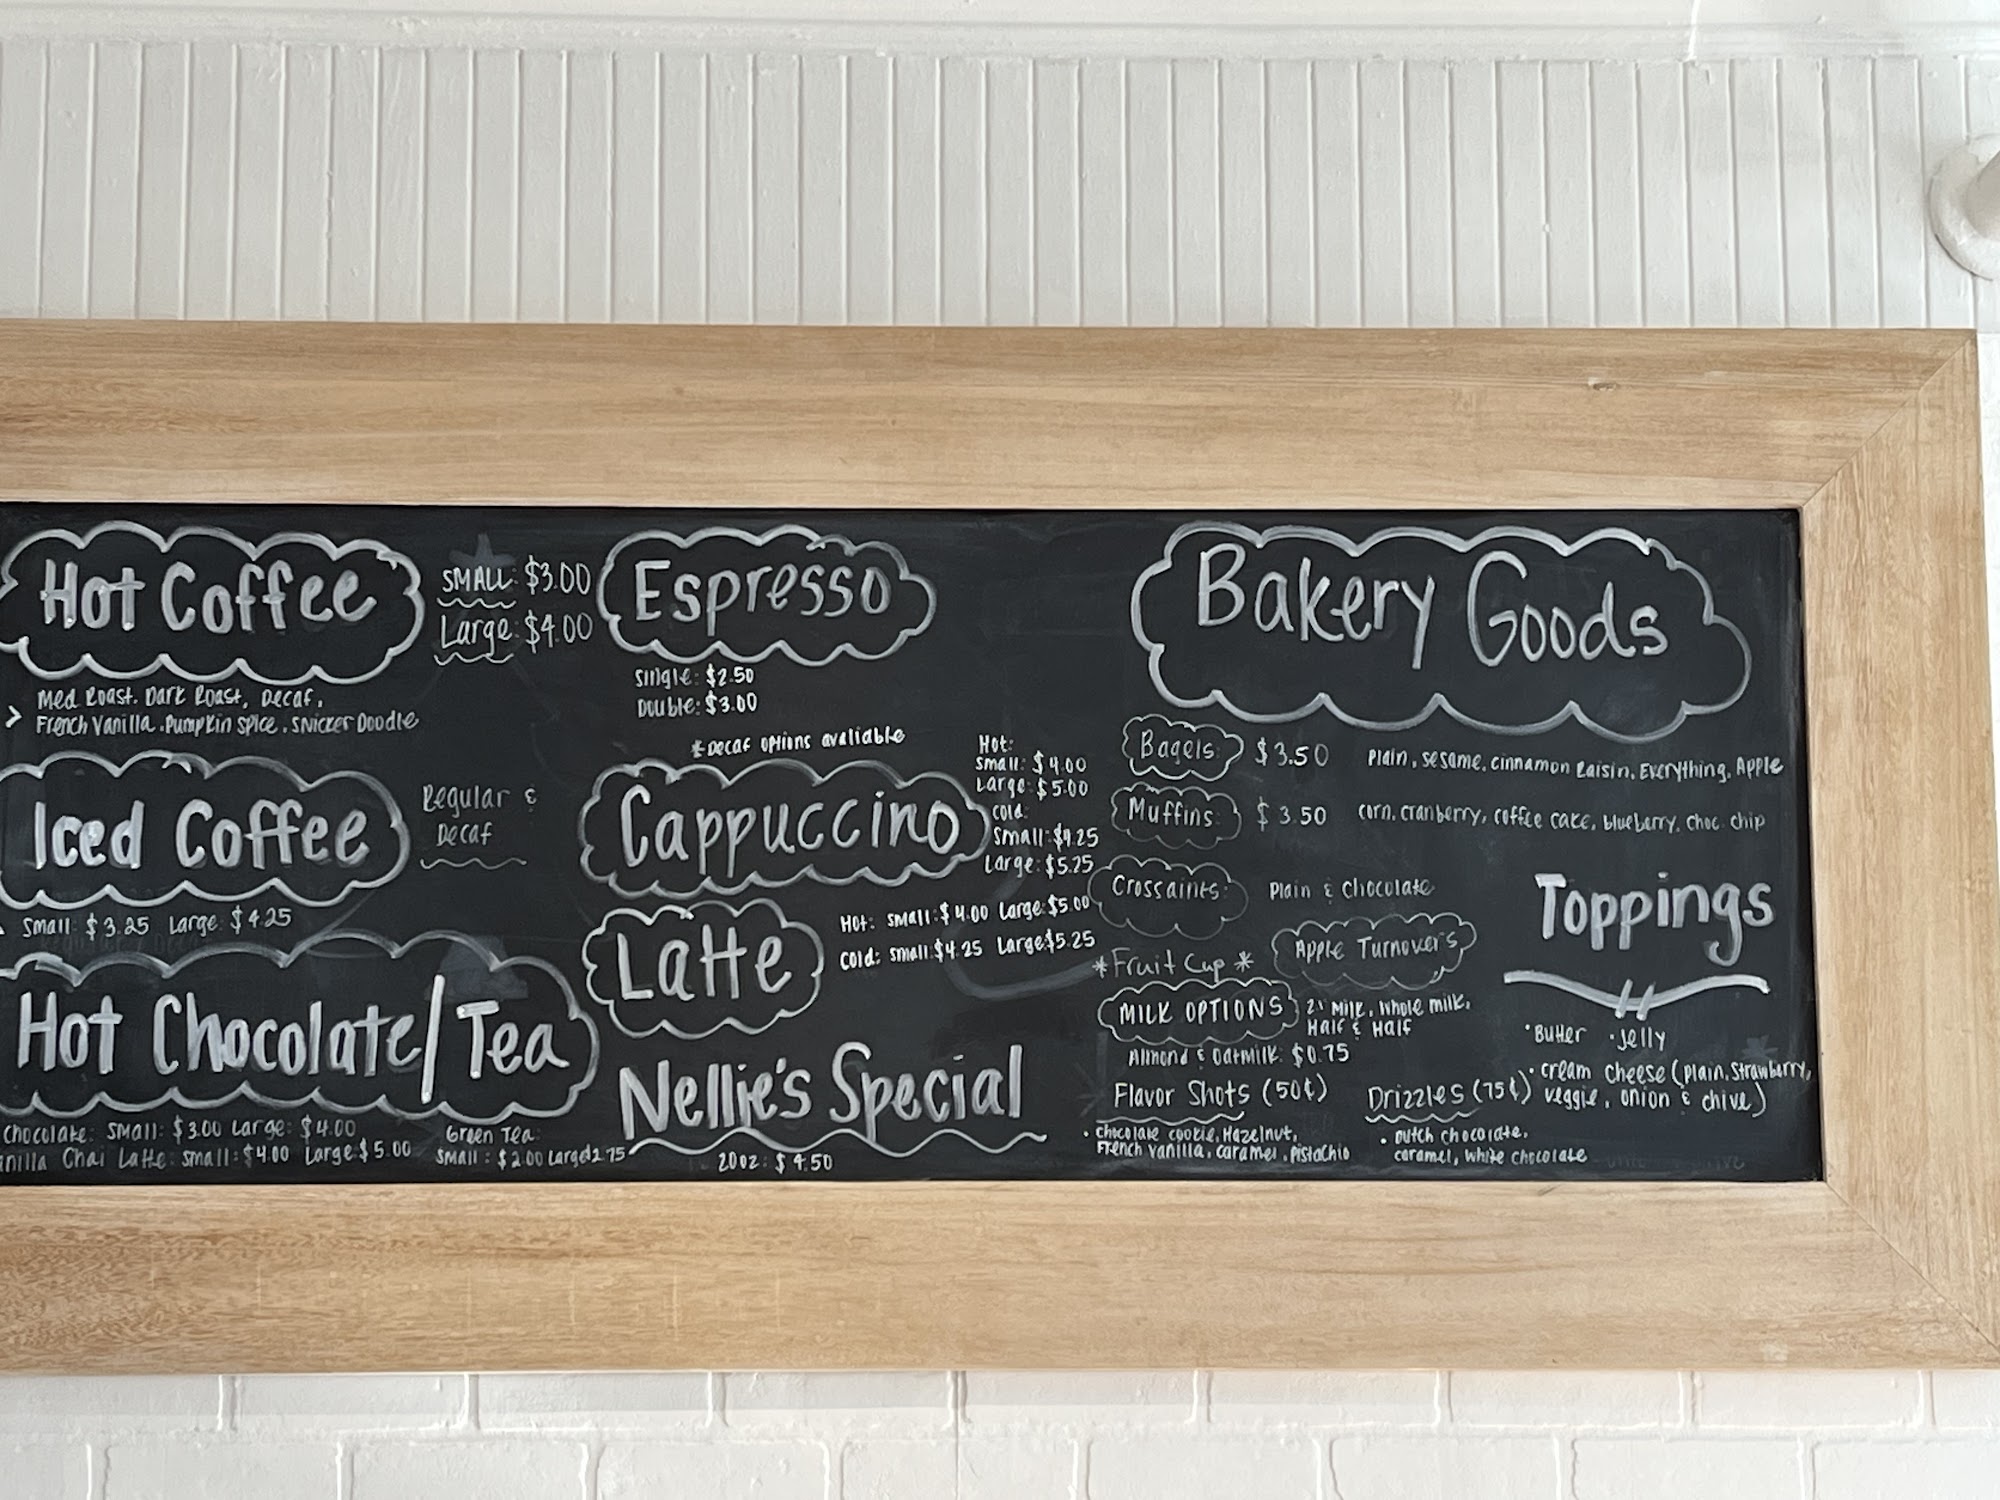 Hot Coffee
SMALL: $3.00
Large: $4.00
Med Roast. Dark Roast, Decaf,
French Vanilla. Pumpkin Spice. Snicker Doodle
Iced Coffee
Regular &
Decaf
Small: $3.25 Large: $4.25
Hot Chocolate/Tea
Chocolate: Small: $3.00 Large: $4.00
anilla Chai Latte: small: $4.00 Large $5.00
Green Tea:
Small: $2.00 Large $2.75
Espresso
Single: $2.50
Double: $3.00
*Decaf options avaliable
Cappuccino
Hot:
Small: $4.00
Large: $5.00
Cold:
Small: $4.25
Large: $5.25
Latte
Hot: small: $4.00 Large: $5.00
Cold: small: $4.25 Large: $5.25
Nellie's Special
20oz: $4.50
Bakery Goods
Bagels: $3.50 Plain, sesame, cinnamon Raisin, Everything, Apple
Muffins: $3.50 corn, cranberry, coffee cake, blueberry, choc. chip
Crossaints: Plain & Chocolate
*Fruit Cup* Apple Turnovers
MILK OPTIONS 2% Milk, Whole milk,
Half & Half
Almond & Oatmilk: $0.75
Flavor Shots (50¢)
• chocolate cookie, Hazelnut,
French Vanilla, caramel, Pistachio
Drizzles (75¢)
• Dutch chocolate,
caramel, white chocolate
Toppings
• Butter • Jelly
• cream cheese (Plain, Strawberry,
veggie, onion & chive)